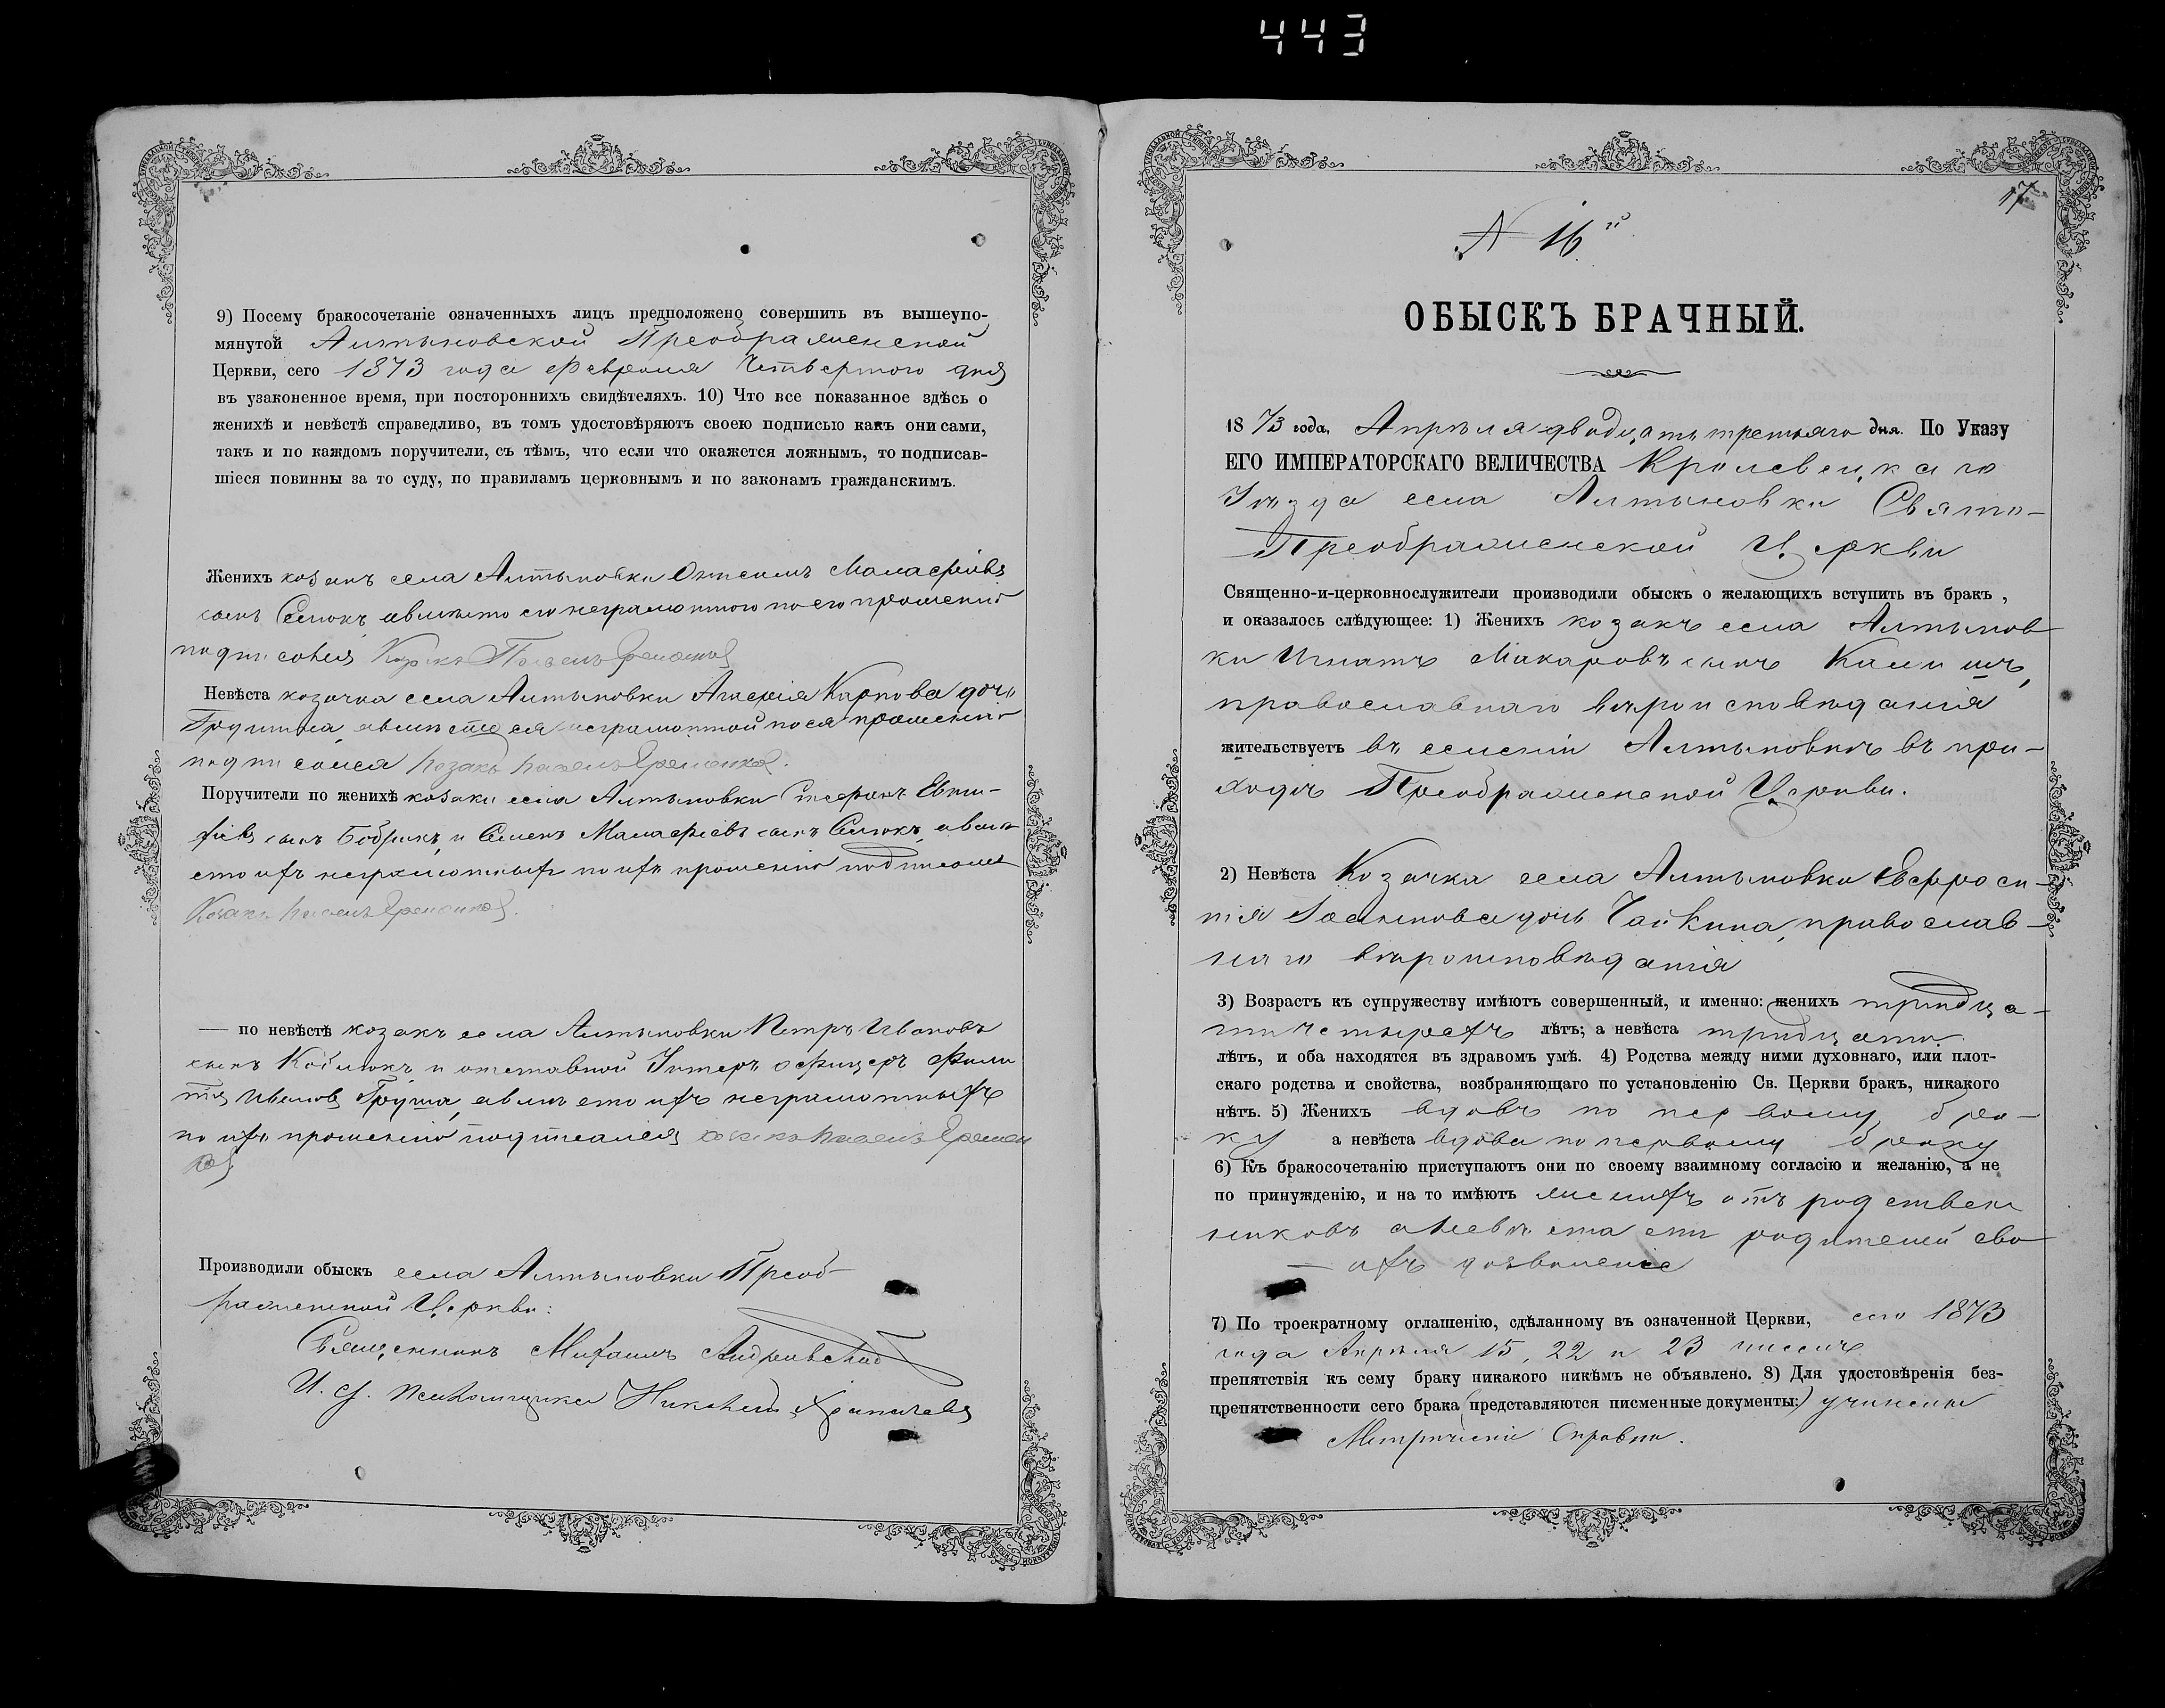 443
9) Посему бракосочетаніе означенныхъ лицъ предположено совершить въ вышеупо-
мянутой Алтыновской Преображенской
Церкви, сего 1873 года Февраля Четвертого дня
въ узаконенное время, при постороннихъ свидѣтеляхъ. 10) Что все показанное здѣсь о
женихѣ и невѣстѣ справедливо, въ томъ удостовѣряютъ своею подписью какъ они сами,
такъ и по каждомъ поручители, съ тѣмъ, что если что окажется ложнымъ, то подписав-
шіеся повинны за то суду, по правиламъ церковнымъ и по законамъ гражданскимъ.
Женихъ козакъ села Алтыновки
сынъ неграмотного по его прошенію
подписался Павелъ
Невѣста козачка села Алтыновки Карпова дочь
неграмотной по ея прошенію
подписался козакъ Павелъ
Поручители по женихѣ козаки села Алтыновки Стефанъ Евти-
сынъ Бобрикъ и Семенъ сынъ
ихъ неграмотныхъ по ихъ прошенію подписался
Козакъ Павелъ
— по невѣстѣ козакъ села Алтыновки Петръ Ивановъ
сынъ и отставной Унтеръ офицеръ Фили
Ивановъ Груша, а вмѣсто ихъ неграмотныхъ
по ихъ прошенію подписался козакъ Павелъ
Производили обыскъ села Алтыновки Преоб-
раженской Церкви:
Священникъ Михаилъ Андріевскій
И. д. псаломщика Николай
17
N 16й
ОБЫСКЪ БРАЧНЫЙ.
1873 года, Апрѣля двадцать третьяго дня. По Указу
ЕГО ИМПЕРАТОРСКАГО ВЕЛИЧЕСТВА Кролевецкаго
Уѣзда села Алтыновки Свято-
Преображенской Церкви
Священно-и-церковнослужители производили обыскъ о желающихъ вступить въ бракъ,
и оказалось слѣдующее: 1) Женихъ козакъ села Алтынов
ки Игнатъ Макаровъ сынъ
православнаго вѣроисповѣданія
жительствуетъ въ селеніи Алтыновкѣ въ при-
ходѣ Преображенской Церкви.
2) Невѣста Козачка села Алтыновки Евфроси-
нія дочь Чайкина, православ-
наго вѣроисповѣданія
3) Возрастъ къ супружеству имѣютъ совершенный, и именно: женихъ тридца-
ти четырехъ лѣтъ; а невѣста тридцати
лѣтъ, и оба находятся въ здравомъ умѣ. 4) Родства между ними духовнаго, или плот-
скаго родства и свойства, возбраняющаго по установленію Св. Церкви бракъ, никакого
нѣтъ. 5) Женихъ вдовъ по первому бра-
ку а невѣста вдова по первому браку
6) Къ бракосочетанію приступаютъ они по своему взаимному согласію и желанію, а не
по принужденію, и на то имѣютъ женихъ отъ родствен
никовъ а невѣста отъ родителей сво
— ихъ дозволеніе
7) По троекратному оглашенію, сдѣланному въ означенной Церкви, сего 1873
года Апрѣля 15, 22 и 23 чиселъ
препятствія къ сему браку никакого никѣмъ не объявлено. 8) Для удостовѣренія без-
препятственности сего брака (представляются писменные документы:) учинены
Метрическіе Справки.